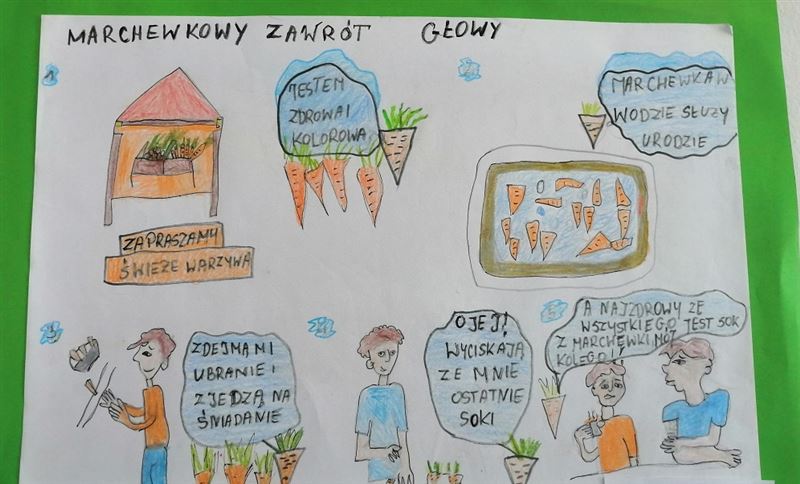 MARCHEWKOWY ZAWRÓT GŁOWY
1
JESTEM
ZDROWA I
KOLOROWA
ZAPRASZAMY
ŚWIEŻE WARZYWA
2
MARCHEWKA W
WODZIE SŁUŻY
URODZIE
3
ZDEJMĄ MI
UBRANIE I
ZJEDZĄ NA
ŚNIADANIE
4
OJEJ!
WYCISKAJĄ
ZE MNIE
OSTATNIE
SOKI
5
A NAJZDROWY ZE
WSZYSTKIEGO JEST SOK
Z MARCHEWKI MÓJ
KOLEGO!!